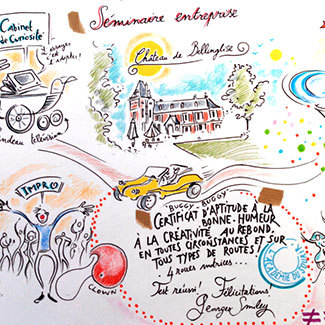 Séminaire entreprise
Cabinet
de Curiosité
Château de Bellinglise
landau télévision
IMPRO
CLOWN
"BUGGY-BUGGY"
CERTIFICAT D'APTITUDE À LA
BONNE-HUMEUR
À LA CRÉATIVITÉ AU REBOND
EN TOUTES CIRCONSTANCES ET SUR
TOUS TYPES DE ROUTES!
4 roues motrices...
Test réussi! Félicitations!
Georges Smiley
ACADÉMIE DU SOURIRE
≠